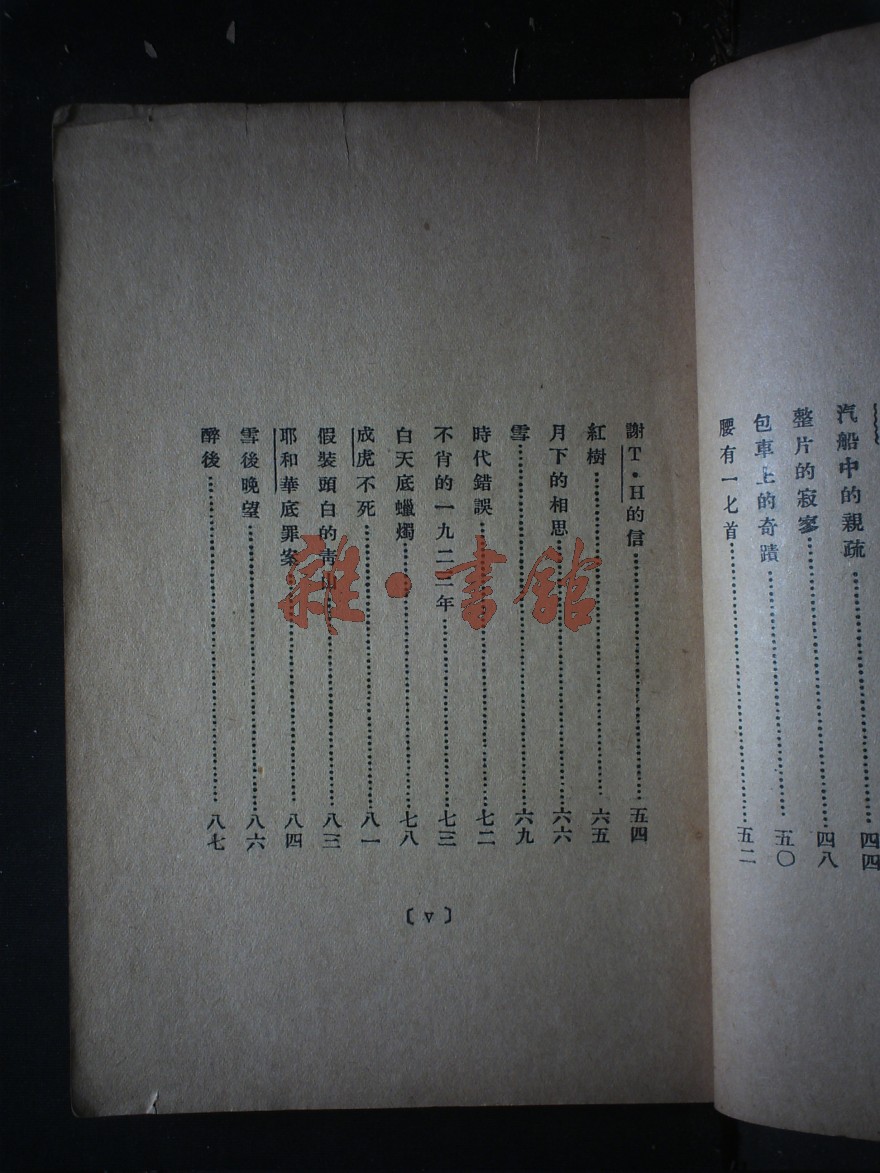 汽船中的親疏……四四
整片的寂寥……四八
包車上的奇蹟……五〇
腰有一匕首……五二
謝T·H的信……五四
紅樹……六五
月下的相思……六六
雪……六九
時代錯誤……七二
不肖的一九二三年……七三
白天底蠟燭……七八
成虎不死……八一
假裝頭白的青山……八三
耶和華底罪案……八四
雪後晚望……八六
醉後……八七
〔v〕
雜·書館